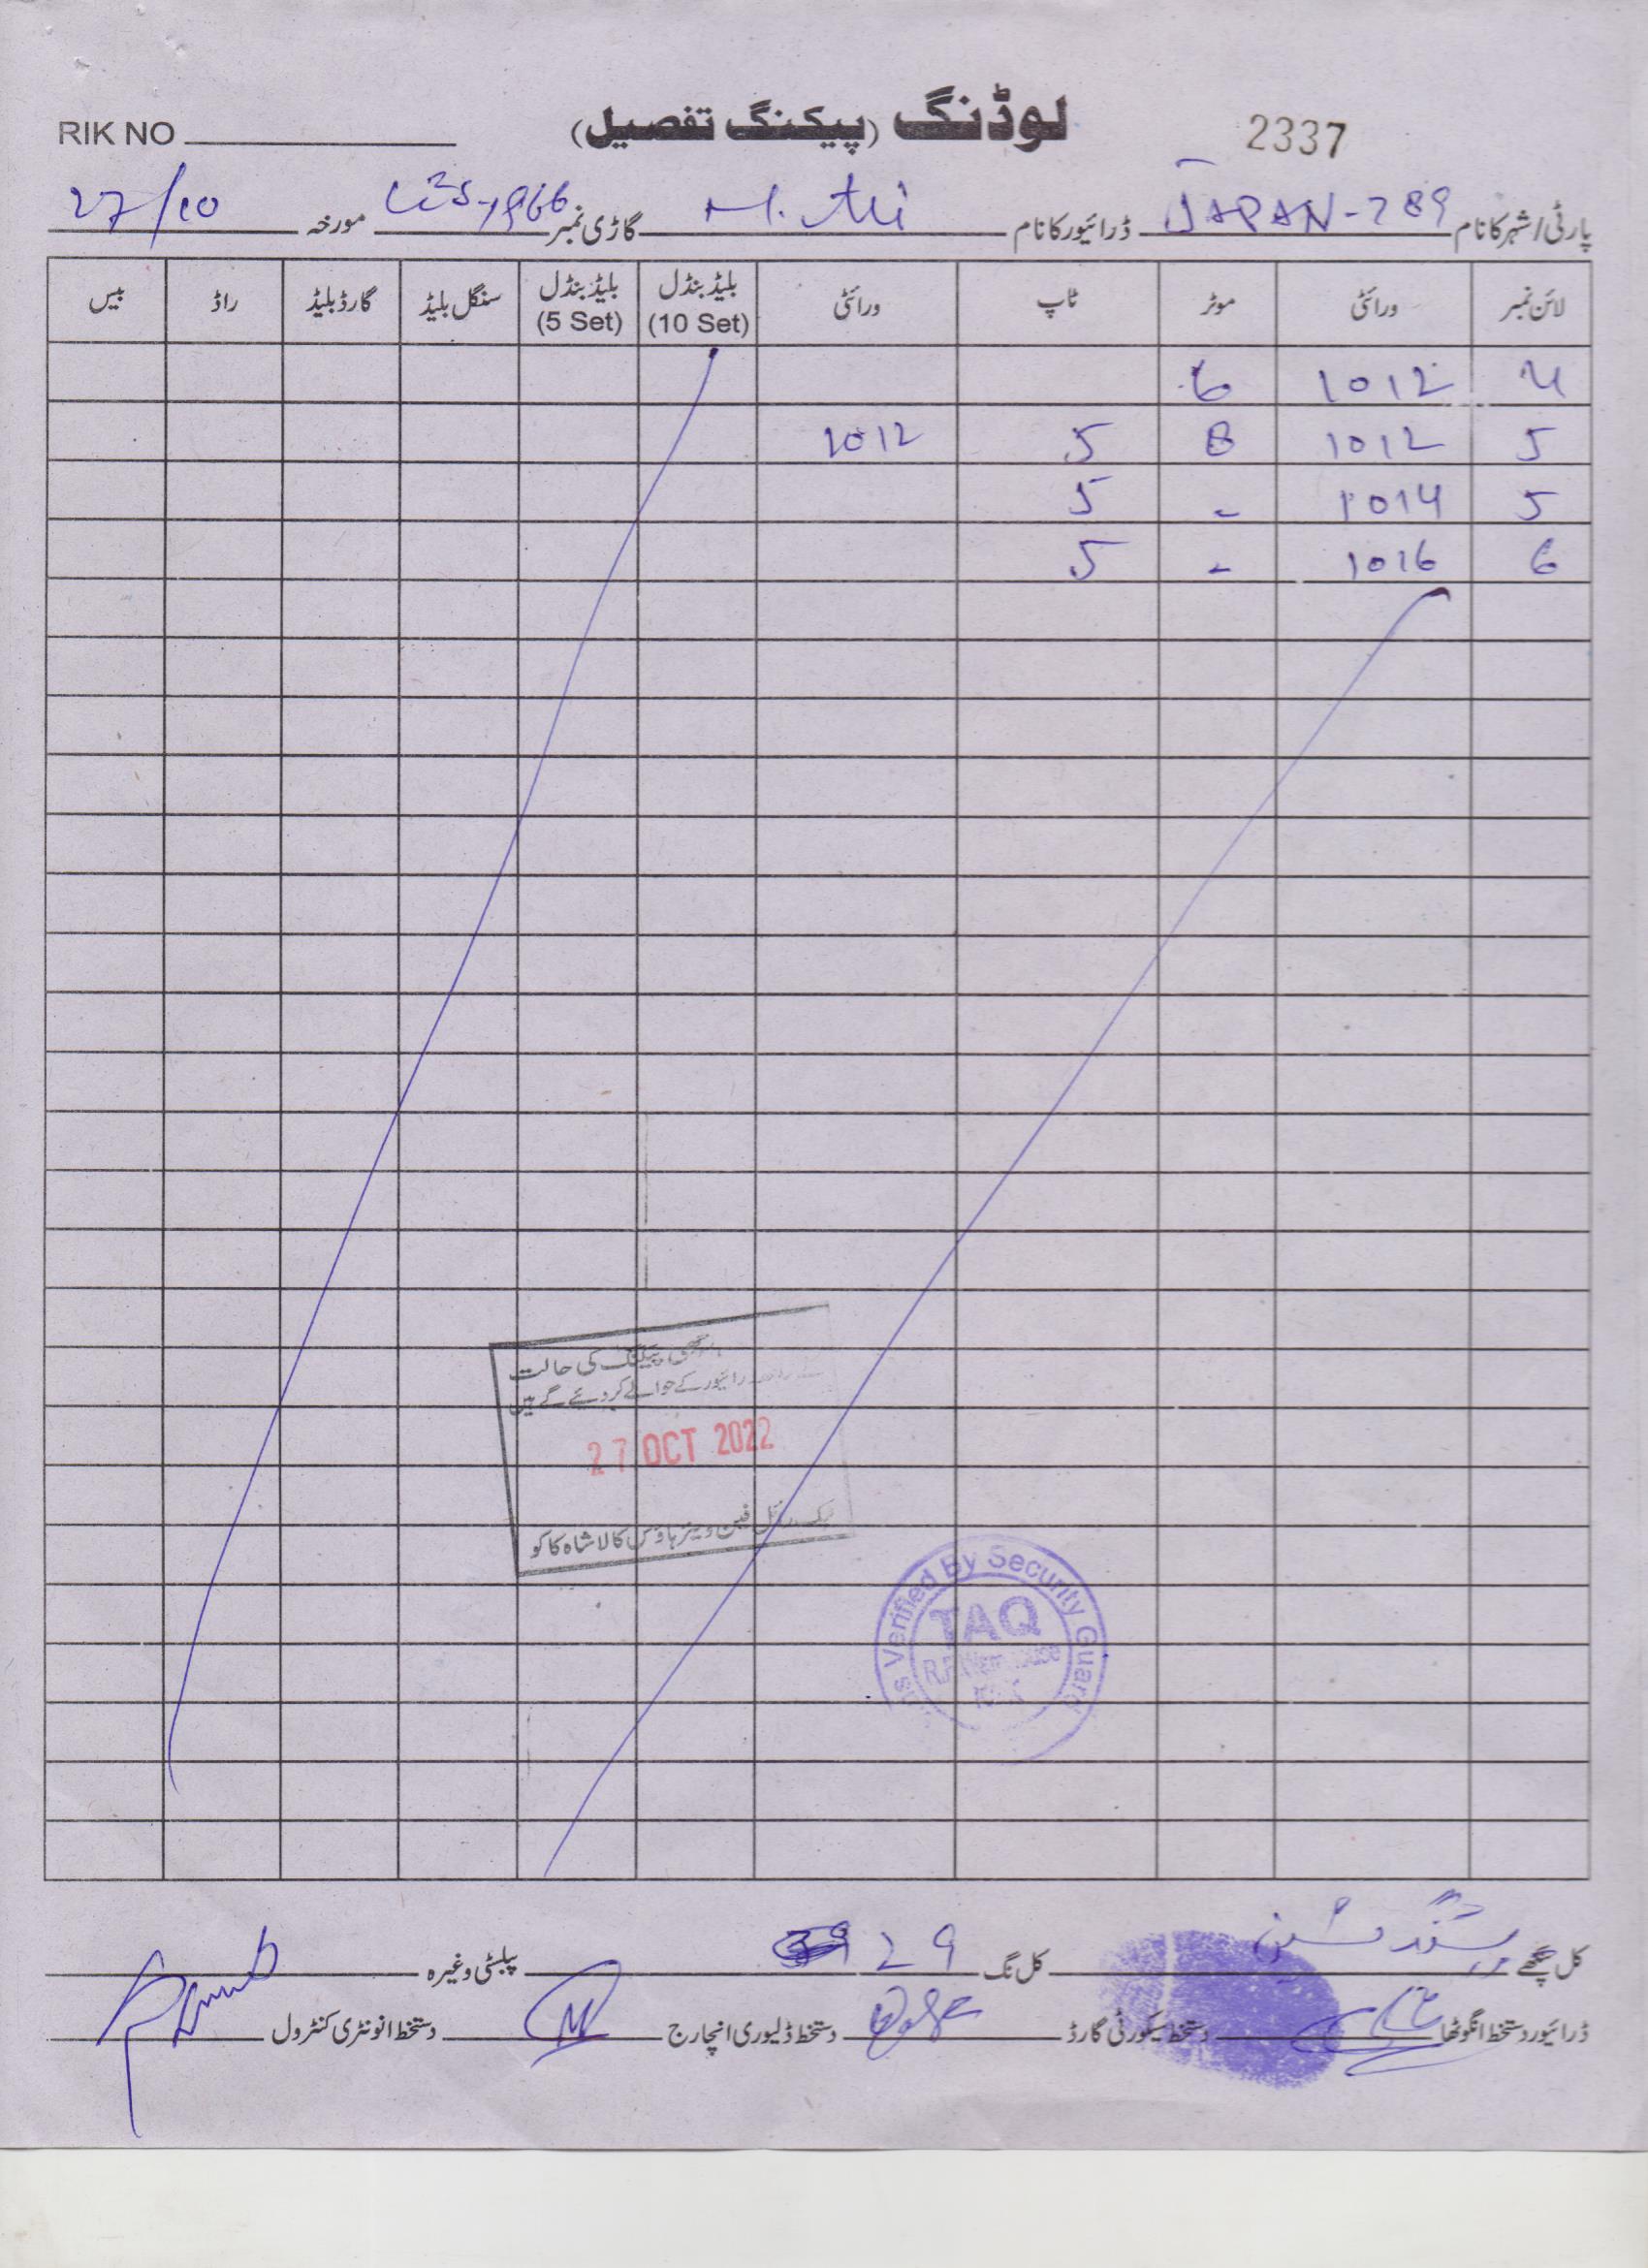 RIK NO لوڈنگ (پیکنگ تفصیل) 2337
پارٹی/شہر کا نام JAPAN-789 ڈرائیور کا نام M. Ali گاڑی نمبر مورخہ 27/10
لائن نمبر ورائٹی موٹر ٹاپ ورائٹی بلیڈ بنڈل (10 Set) بلیڈ بنڈل (5 Set) سنگل بلیڈ گارڈ بلیڈ راڈ بیس
4 1012 6
5 1012 8 5 1012
5 1014 - 5
6 1016 - 5
پیکنگ کی حالت
ڈرائیور کے حوالے کر دئے گے ہیں
27 OCT 2022
رائل فین ویئر ہاؤس کالا شاہ کاکو
Verified By Security Guard
TAQ
کل پنکھے کل نگ 29 پبلسٹی وغیرہ
ڈرائیور دستخط انگوٹھا دستخط سیکورٹی گارڈ دستخط ڈلیوری انچارج دستخط انونٹری کنٹرول